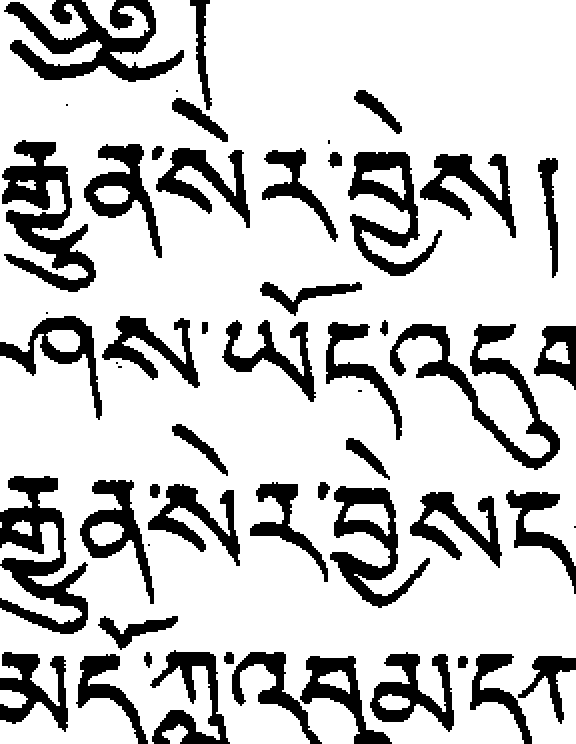 ༄༅།
རྒྱུན་སེར་བྱེས།
ཤས་ཡོད་འདུ
རྒྱུན་སེར་བྱེས་ད
མདོ་ཀླུ་འབུམ་དཀ